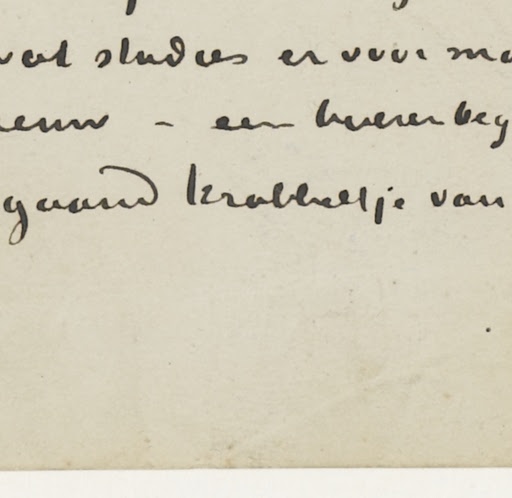 wat studies er voor ma
eeuw - een boerenbeg
gaand krabbeltje van